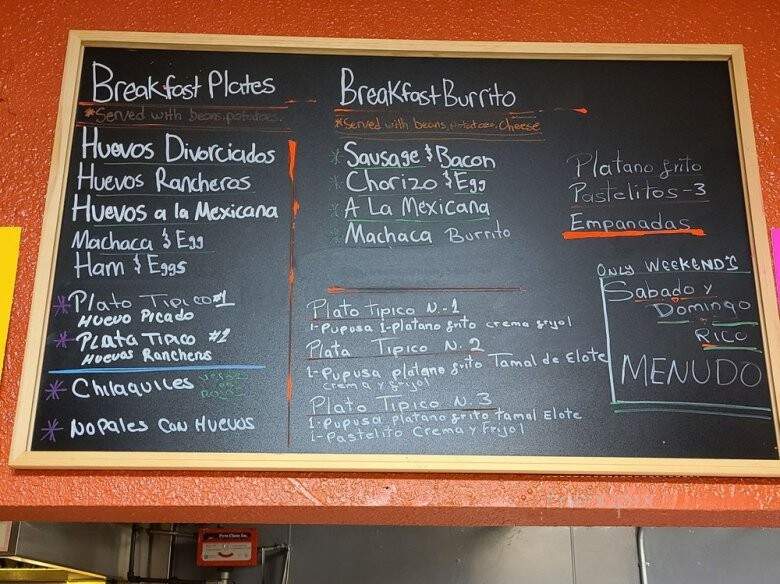 Breakfast Plates
*Served with beans, potatoes.
Huevos Divorciados
Huevos Rancheros
Huevos a la Mexicana
Machaca & Egg
Ham & Eggs
*Plato Tipico #1
Huevo Picado
*Plata Tipico #2
Huevos Rancheros
*Chilaquiles
*Nopales con Huevos
Breakfast Burrito
*Served with beans, potatoes, Cheese
*Sausage & Bacon
*Chorizo & Egg
*A La Mexicana
*Machaca Burrito
Plato tipico N.-1
1-Pupusa 1-platano frito crema frijol
Plata Tipico N. 2
1-Pupusa platano frito Tamal de Elote
crema y frijol
Plato Tipico N.3
1-Pupusa platano frito tamal Elote
1-Pastelito Crema y Frijol
Platano frito
Pastelitos-3
Empanadas
Only Weekend's
Sabado y
Domingo
Rico
MENUDO